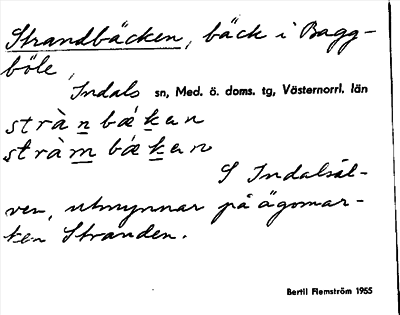 Strandbäcken, bäck i Bagg-
böle,
Indals sn, Med. ö. doms. tg, Västernorrl. län
stràn bǽkan
stràm bǽkan
S Indalsäl-
ven, utmynnar på ägomar-
ken Stranden.
Bertil Flemström 1955